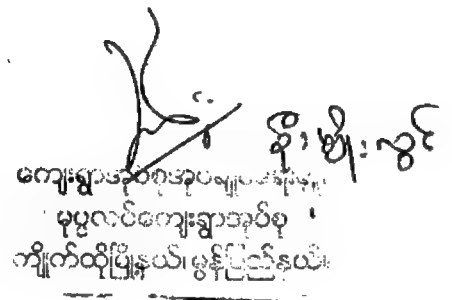 စိုးမျိုးလွင်
ကျေးရွာအုပ်စုအုပ်ချုပ်ရေးမှူး
မုပ္ပလင်ကျေးရွာအုပ်စု
ကျိုက်ထိုမြို့နယ်၊ မွန်ပြည်နယ်။